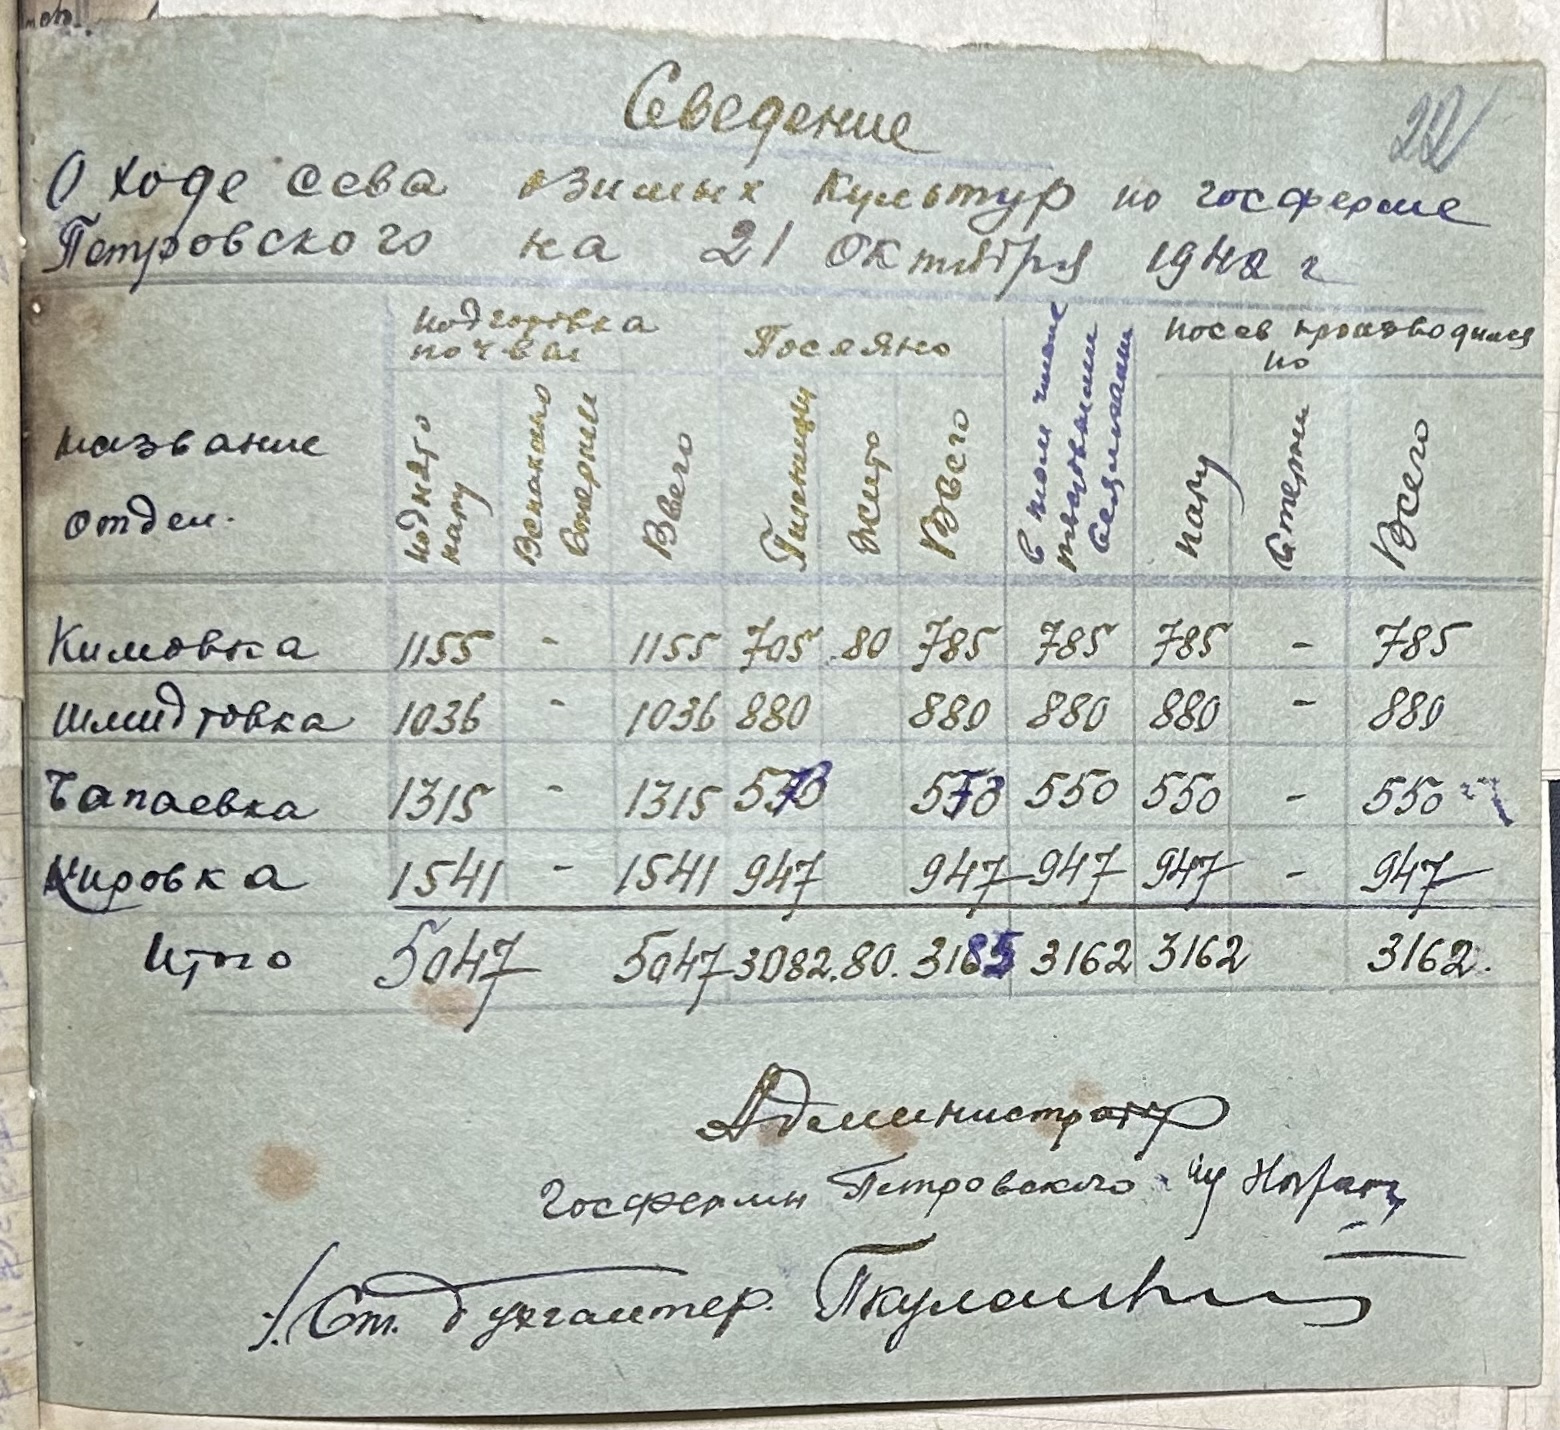 22
Сведение
О ходе сева озимых культур по госферме
Петровского на 21 октября 1942 г
Название отдел.
подготовка почвы
Посеяно
посев производился по
поднято пару
Вспахано стерни
Всего
Пшеницы
Жито
Всего
в том числе тракторными сеялками
пару
Стерни
Всего
Кимовка 1155 - 1155 705 80 785 785 785 - 785
Шмидтовка 1036 - 1036 880 880 880 880 - 880
Чапаевка 1315 - 1315 573 573 550 550 - 550
Кировка 1541 - 1541 947 947 947 947 - 947
Итого 5047 5047 3082. 80. 3185 3162 3162 3162.
Администратор
Госфермы Петровского
Ст. бухгалтер.